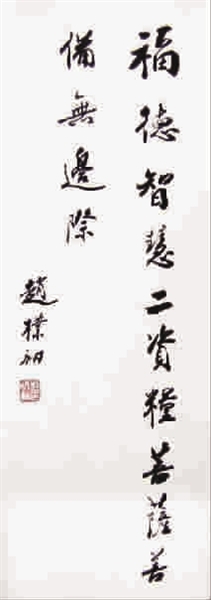 福德智慧二資糧菩薩善
備無邊際
趙樸初